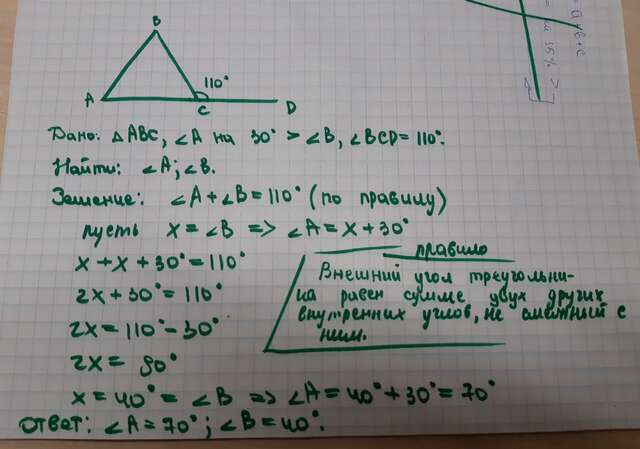 B
110°
A
C
D
Дано: △ABC, ∠A на 30° > ∠B, ∠BCD = 110°.
Найти: ∠A; ∠B.
Решение: ∠A + ∠B = 110° (по правилу)
пусть x = ∠B => ∠A = x + 30°
x + x + 30° = 110°
2x + 30° = 110°
2x = 110° - 30°
2x = 80°
x = 40° = ∠B => ∠A = 40° + 30° = 70°
Ответ: ∠A = 70°; ∠B = 40°.
правило
Внешний угол треугольни-
ка равен сумме двух других
внутренних углов, не смежный с
ним.